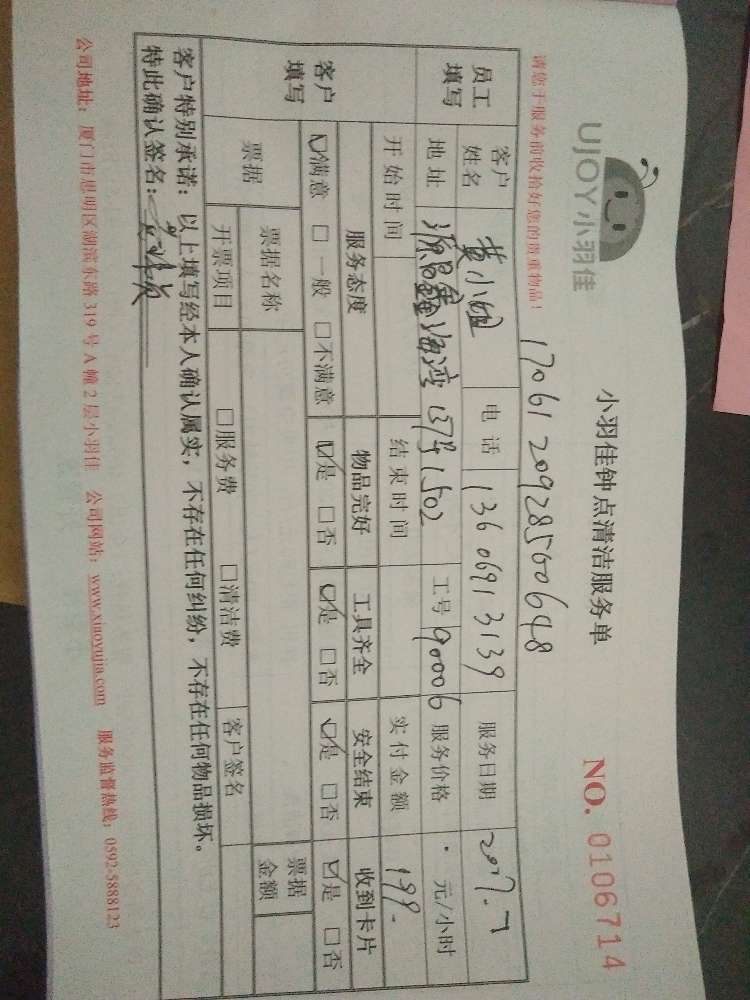 UJOY小羽佳
小羽佳钟点清洁服务单
NO. 0106714
请您于服务前收拾好您的贵重物品!
17061209285600648
员工填写
客户姓名 黄小姐 电话 13606913139 服务日期 2017.7
地址 海湾 1502 工号 90006 服务价格 元/小时
开始时间 结束时间 实付金额 199.
客户填写
服务态度 物品完好 工具齐全 安全结束 收到卡片
☑满意 □一般 □不满意 ☑是 □否 ☑是 □否 ☑是 □否 ☑是 □否
票据 票据名称 票据金额
开票项目 □服务费 □清洁费 客户签名
客户特别承诺:以上填写经本人确认属实,不存在任何纠纷,不存在任何物品损坏。
特此确认签名:
公司地址:厦门市思明区湖滨东路319号A幢2层小羽佳 公司网站:www.xiaoyujia.com 服务监督热线:0592-5888123